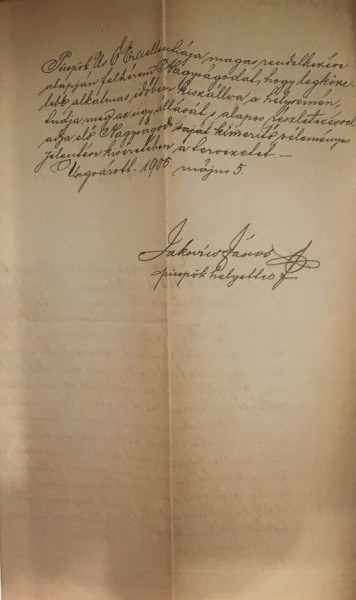 Püspök Úr Ő Excellenciája magas rendelkezése
alapján felkérem Nagyságodat, hogy legköze-
lebb alkalmas időben kiszállva a helyszínen,
tudja meg az ügy állását, alapos részletezéssel
adja elő Nagyságod saját kimerítő véleményes
jelentése kíséretében a tervezetet. –
Ungvárott. 1905. május 5.
Jakovics János
püspök helyettes